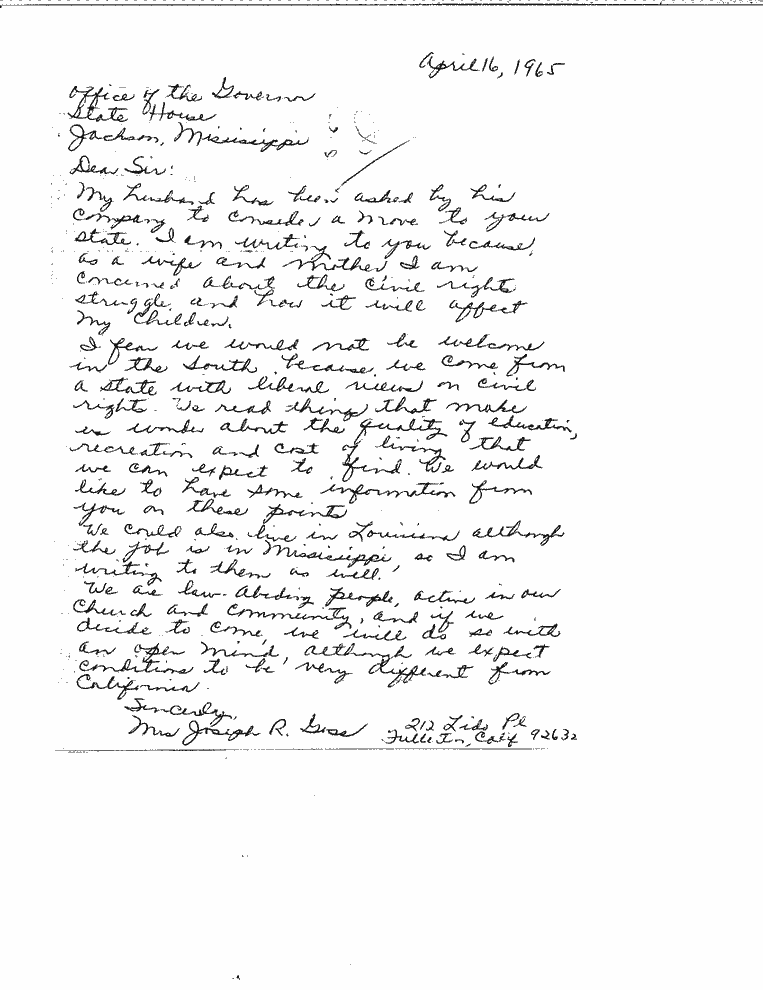 April 16, 1965
Office of the Governor
State House
Jackson, Mississippi
Dear Sir:
My husband has been asked by his
company to consider a move to your
state. I am writing to you because,
as a wife and mother I am
concerned about the civil rights
struggle and how it will affect
my children.
I fear we would not be welcome
in the South because we come from
a state with liberal views on civil
rights. We read things that make
us wonder about the quality of education,
recreation and cost of living that
we can expect to find. We would
like to have some information from
you on these points
We could also live in Louisiana although
the job is in Mississippi, so I am
writing to them as well.
We are law-abiding people, active in our
church and community, and if we
decide to come, we will do so with
an open mind, although we expect
conditions to be very different from
California.
Sincerely,
Mrs Joseph R. 212 Lido Pl
Fullerton, Calif 92632